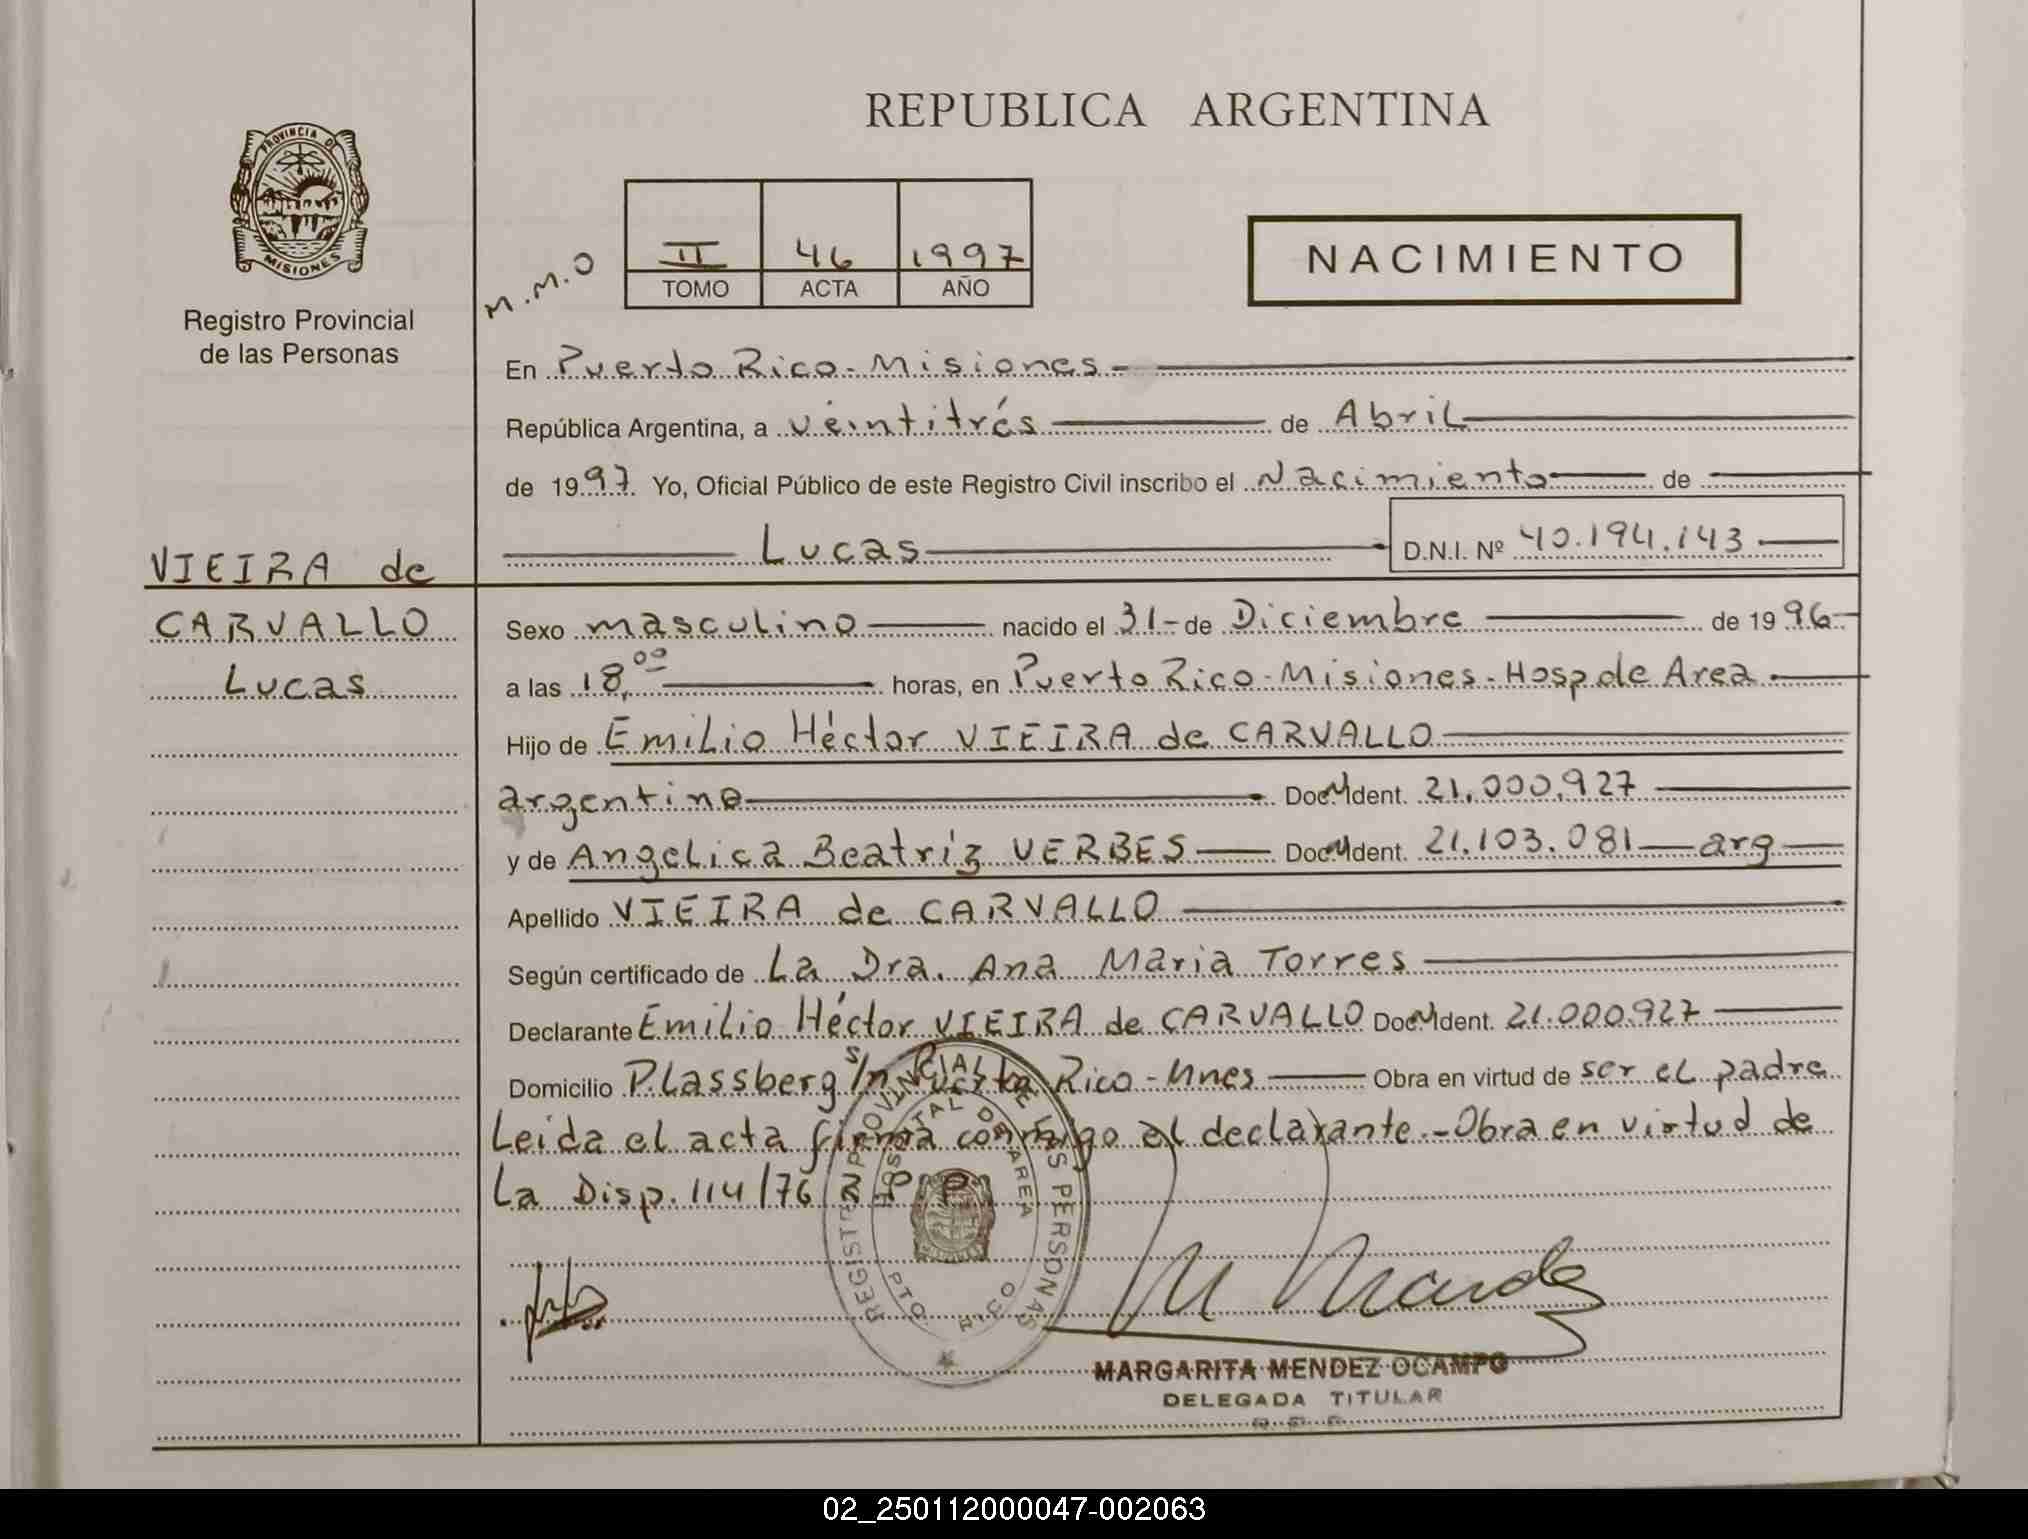 REPUBLICA ARGENTINA
PROVINCIA DE
MISIONES
Registro Provincial
de las Personas
M.M.O
II 46 1997
TOMO ACTA AÑO
NACIMIENTO
En Puerto Rico - Misiones -
República Argentina, a veintitrés de Abril
de 1997. Yo, Oficial Público de este Registro Civil inscribo el Nacimiento de
Lucas D.N.I. Nº 40.194.143
VIEIRA de
CARVALLO
Lucas
Sexo masculino nacido el 31 - de Diciembre de 1996
a las 18,00 horas, en Puerto Rico - Misiones - Hosp de Area
Hijo de Emilio Héctor VIEIRA de CARVALLO
argentino Doc. M Ident. 21.000.927
y de Angelica Beatríz VERBES Doc. M Ident. 21.103.081 arg
Apellido VIEIRA de CARVALLO
Según certificado de La Dra. Ana Maria Torres
Declarante Emilio Héctor VIEIRA de CARVALLO Doc. M Ident. 21.000.927
Domicilio P. Lassberg s/n Puerto Rico - Mnes Obra en virtud de ser el padre
Leida el acta firma conmigo el declarante. - Obra en virtud de
La Disp. 114/76 R P P
REGISTRO PROVINCIAL DE LAS PERSONAS
HOSPITAL DE AREA
PTO. RICO
MARGARITA MENDEZ OCAMPO
DELEGADA TITULAR
02_250112000047-002063